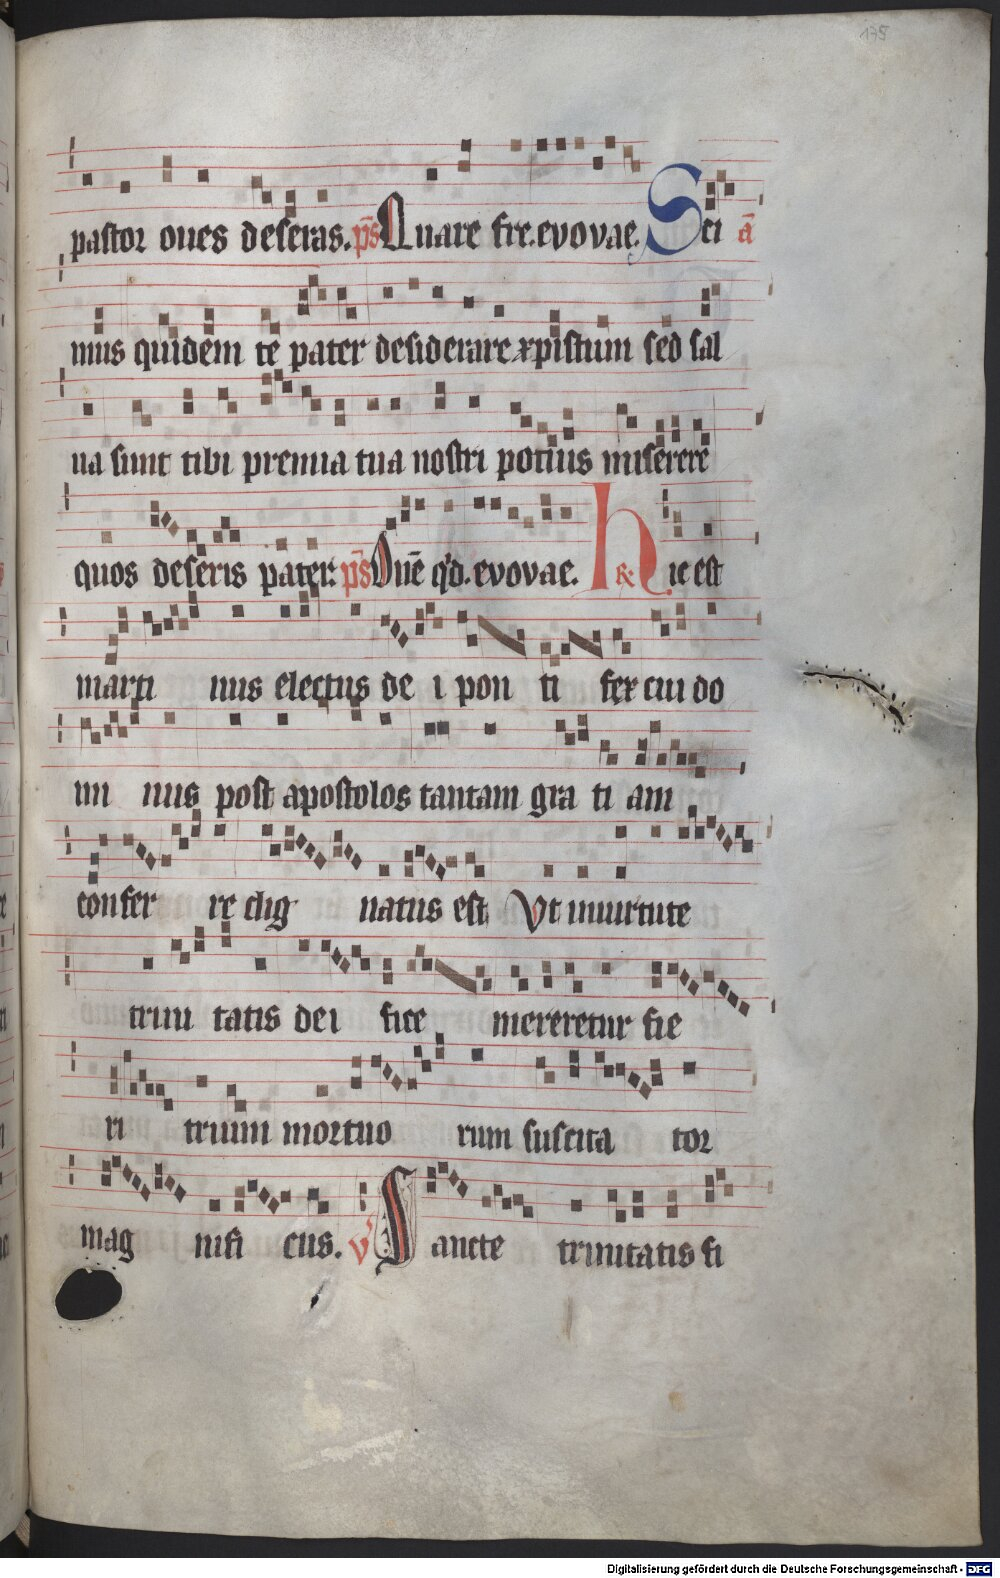 135
pastor oues deseras. ps̄ Quare fre. evovae. Sci ā
mus quidem te pater desiderare xpistum sed sal
ua sunt tibi premia tua nostri potius miserere
quos deseris pater: ps̄ Dn̄e qd. evovae. R Hic est
martinus electus dei pontifex cui do
minus post apostolos tantam gratiam
conferre dignatus est Vt in uirtute
trinitatis deifice mereretur fie
ri trium mortuorum suscitator
magnificus. V Sancte trinitatis fi
Digitalisierung gefördert durch die Deutsche Forschungsgemeinschaft - DFG